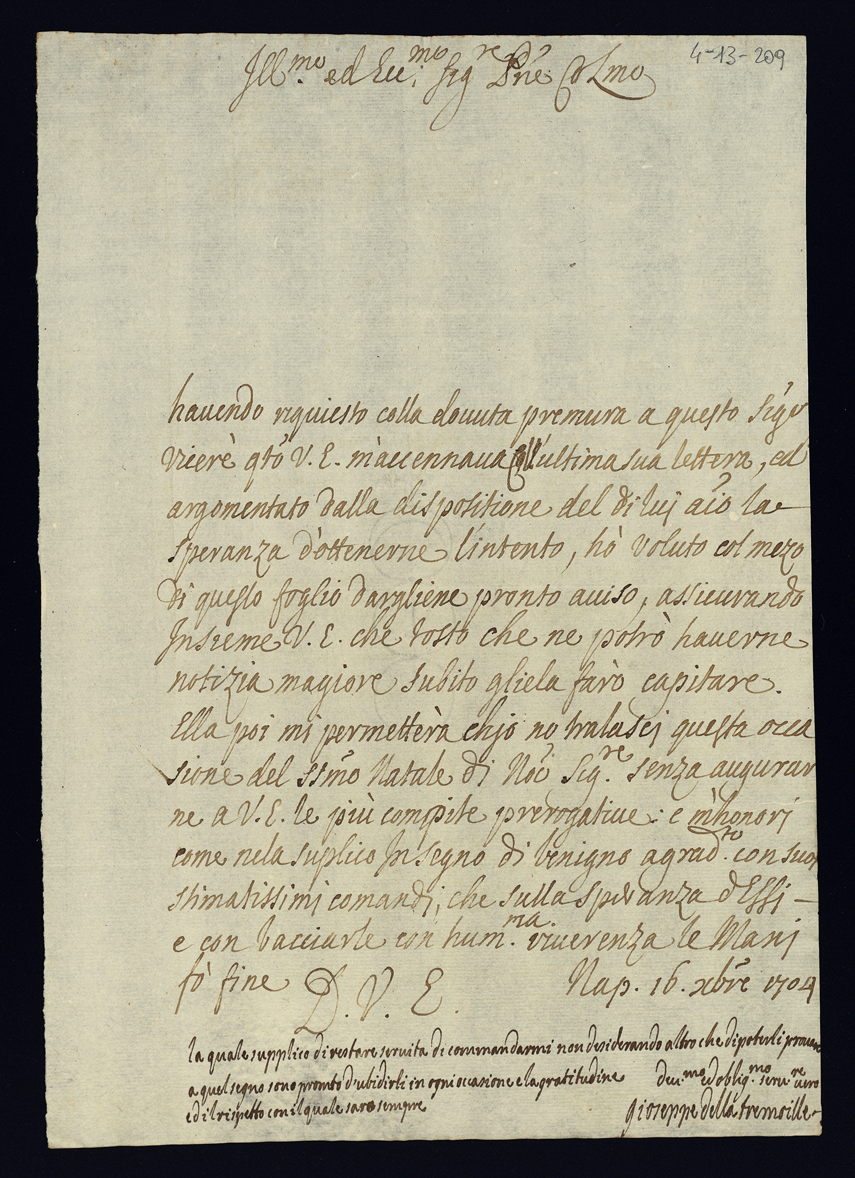 4-13-209
Ill.mo ed Ecc.mo Sig.re Pñe Colmo
havendo riquiesto colla dovuta premura a questo Sigr
Vicerè qto V. E. m'accennava coll'ultima sua lettera, ed
argomentato dalla dispositione del di lui aio la
speranza d'ottenerne l'intento, hò voluto col mezo
di questo foglio dargliene pronto aviso, assicurando
Insieme V. E. che tosto che ne potrò haverne
notizia magiore subito gliela farò capitare.
Ella poi mi permetterà ch'io no tralasci questa occa
sione del ssmo Natale di Nō Sig.re senza augurar
ne a V. E. le più compite prerogative: e m'honori
come nela suplico In segno di benigno agrad.to con suoi
stimatissimi comandi, che sulla speranza d'Essi –
e con bacciarle con hum.ma riverenza le Mani
fò fine D. V. E. Nap. 16. xbre 1704
la quale supplico di restare servita di commandarmi non desiderando altro che di poterli provare
a quel segno sono pronto d'ubidirli in ogni occasione e la gratitudine dev.mo ed oblig.mo serv.re vero
ed il rispetto con il quale saro sempre gioseppe della tremoille